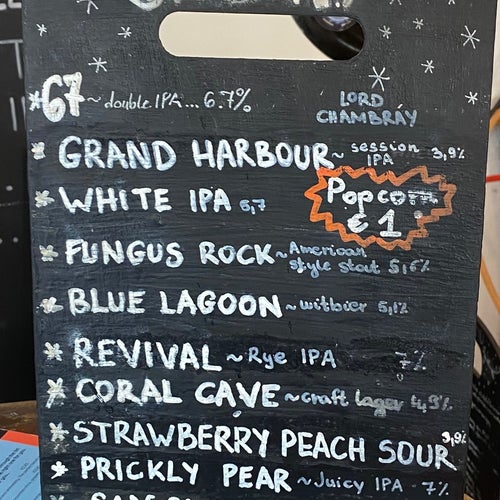 67 ~ double IPA... 6.7%
LORD
CHAMBRAY
GRAND HARBOUR ~ session IPA 3,9%
WHITE IPA 6,7
Popcorn
€ 1
FUNGUS ROCK ~ American style stout 5,6%
BLUE LAGOON ~ witbier 5,1%
REVIVAL ~ Rye IPA 7%
CORAL CAVE ~ craft lager 4,9%
STRAWBERRY PEACH SOUR 3,9%
PRICKLY PEAR ~ Juicy IPA - 7%